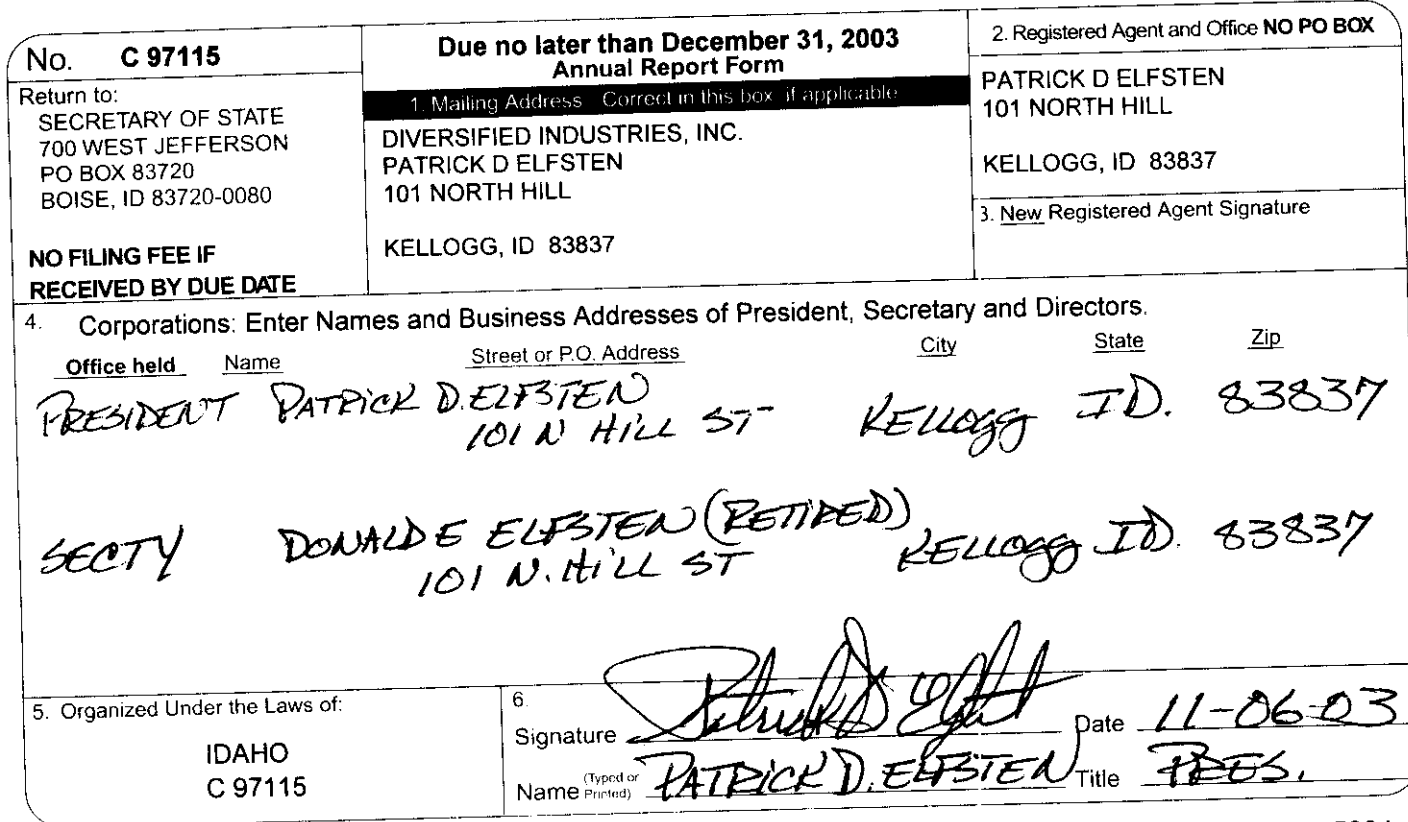 No. C 97115
Return to:
SECRETARY OF STATE
700 WEST JEFFERSON
PO BOX 83720
BOISE, ID 83720-0080
NO FILING FEE IF
RECEIVED BY DUE DATE
Due no later than December 31, 2003
Annual Report Form
1. Mailing Address Correct in this box if applicable
DIVERSIFIED INDUSTRIES, INC.
PATRICK D ELFSTEN
101 NORTH HILL
KELLOGG, ID 83837
2. Registered Agent and Office NO PO BOX
PATRICK D ELFSTEN
101 NORTH HILL
KELLOGG, ID 83837
3. New Registered Agent Signature
4. Corporations: Enter Names and Business Addresses of President, Secretary and Directors.
Office held Name Street or P.O. Address City State Zip
PRESIDENT PATRICK D. ELFSTEN
101 N HILL ST KELLOGG ID. 83837
SECTY DONALD E ELFSTEN (RETIRED)
101 N. HILL ST KELLOGG ID. 83837
5. Organized Under the Laws of:
IDAHO
C 97115
6.
Signature Patrick D Elfsten Date 11-06-03
Name (Typed or Printed) PATRICK D. ELFSTEN Title PRES.